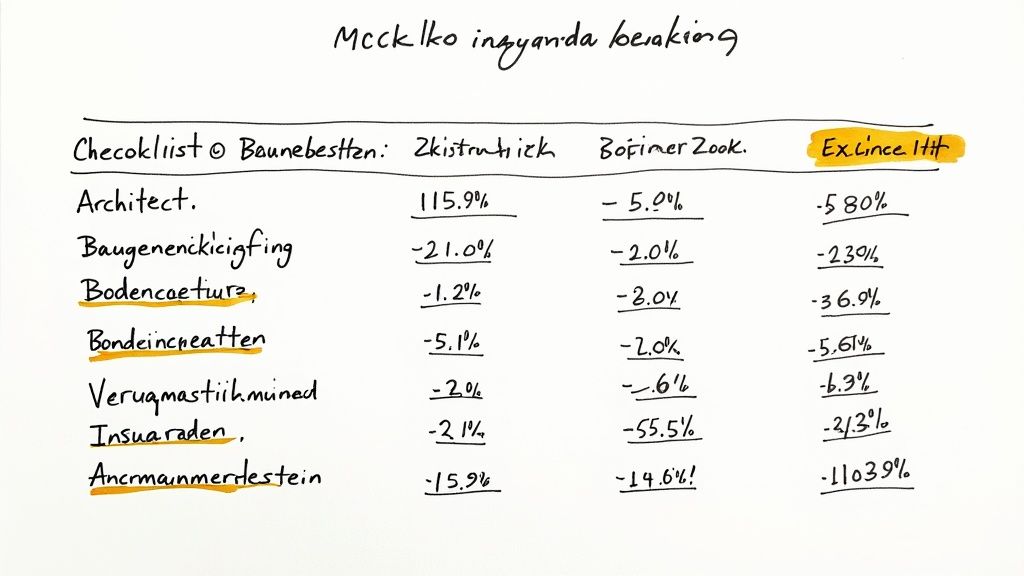 Mcck lko ingyanda beraking
Checokliist © Baunebestten: Zkistrutrickh Bofimer Zook. Exlince ltH
Architect. 115.9% - 5.0% -580%
Baugenenickicigfing -21.0% -2.0% -230%
Bodencoeturz. -1.2% -3.0% -36.9%
Bondeincpeatten -5.1% -2.0% -5.61%
Veruqmastiihmuined -2% -6% -6.3%
Insuaraden. -21% -55.5% -213%
Ancrmaunmerdestein -15.9% -14.6%! -11039%